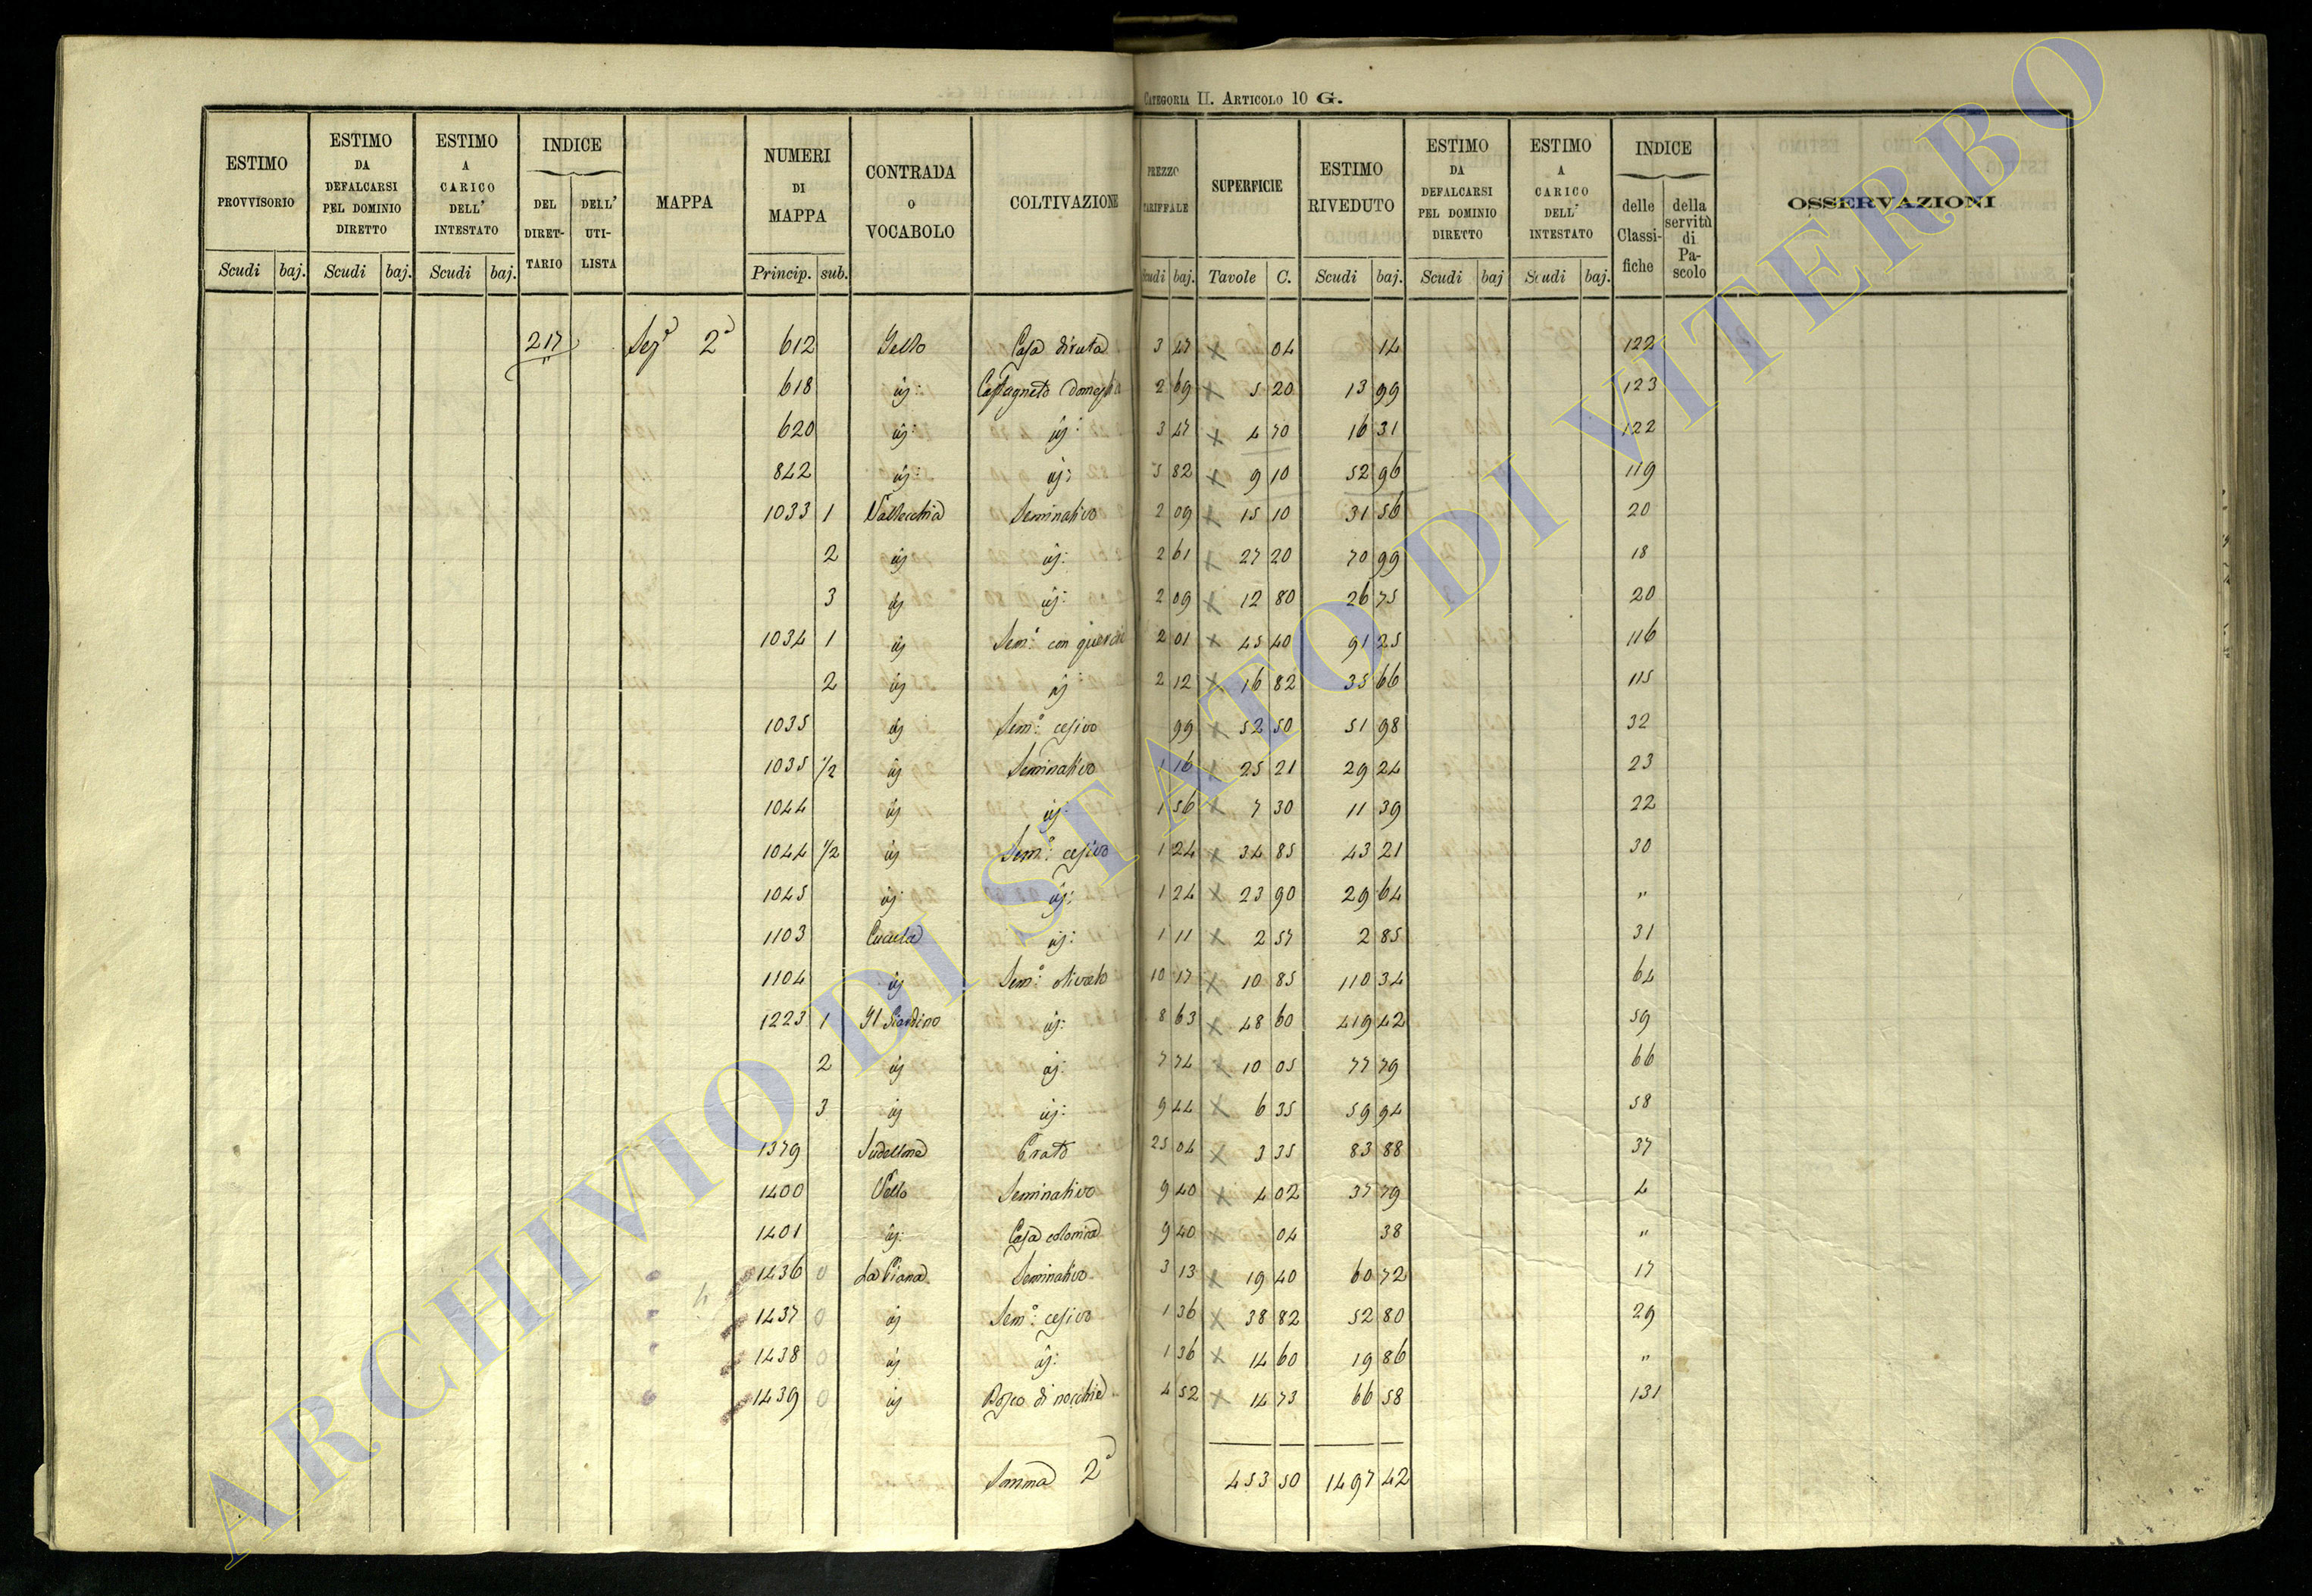 CATEGORIA II. ARTICOLO 10 G.
ESTIMO PROVVISORIO Scudi baj.
ESTIMO DA DEFALCARSI PEL DOMINIO DIRETTO Scudi baj.
ESTIMO A CARICO DELL' INTESTATO Scudi baj.
INDICE DEL DIRETTARIO DELL' UTILISTA
MAPPA
NUMERI DI MAPPA Princip. sub.
CONTRADA O VOCABOLO
COLTIVAZIONE
PREZZO TARIFFALE Scudi baj.
SUPERFICIE Tavole C.
ESTIMO RIVEDUTO Scudi baj.
ESTIMO DA DEFALCARSI PEL DOMINIO DIRETTO Scudi baj
ESTIMO A CARICO DELL' INTESTATO Scudi baj.
INDICE delle Classifiche della servitù di Pascolo
OSSERVAZIONI
217 Sez.e 2a 612 Casa diruta 3 47 x 04 14 122
618 id: Castagneto domest 2 69 x 5 20 13 99 123
620 id: id: 3 47 x 4 70 16 31 122
842 id: id: 5 82 x 9 10 52 96 119
1033 1 Vallecchia Seminativo 2 09 x 15 10 31 56 20
2 id id: 2 61 x 27 20 70 99 18
3 id id: 2 09 x 12 80 26 75 20
1034 1 id Sem.o con querce 2 01 x 45 40 91 25 116
2 id id 2 12 x 16 82 35 66 115
1035 id Sem.o cesivo 99 x 52 50 51 98 32
1035 1/2 id Seminativo 1 16 x 25 21 29 24 23
1044 id id: 1 56 x 7 30 11 39 22
1044 1/2 id Sem.o cesivo 1 24 x 34 85 43 21 30
1045 id id: 1 24 x 23 90 29 64 "
1103 id: 1 11 x 2 57 2 85 31
1104 id Sem.o olivato 10 17 x 10 85 110 34 64
1223 1 Il Giardino id: 8 63 x 48 60 419 42 59
2 id id: 7 74 x 10 05 77 79 66
3 id id: 9 44 x 6 35 59 94 58
1379 Prato 25 04 x 3 35 83 88 37
1400 Seminativo 9 40 x 4 02 37 79 4
1401 id: Casa colonica 9 40 x 04 38 "
1436 0 La Piana Seminativo 3 13 x 19 40 60 72 17
1437 0 id Sem.o cesivo 1 36 x 38 82 52 80 29
1438 0 id id: 1 36 x 14 60 19 86 "
1439 0 id Bosco di nocchie 4 52 x 14 73 66 58 131
Somma 2a 453 50 1497 42
ARCHIVIO DI STATO DI VITERBO